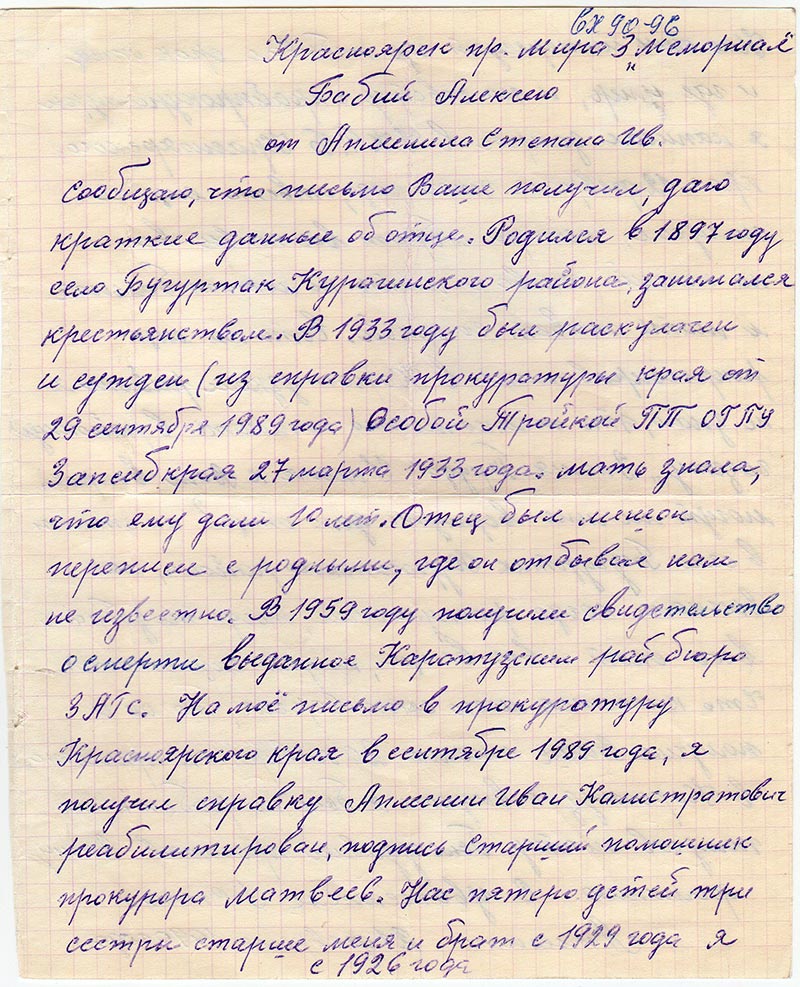 вх 90-96
Красноярск пр. Мира 3 „Мемориал"
Бабий Алексею
от Апменина Степана Ив.
Сообщаю, что письмо Ваше получил, даю
краткие данные об отце. Родился в 1897 году
село Бугуртак Курагинского района, занимался
крестьянством. В 1933 году был раскулачен
и сужден (из справки прокуратуры края от
29 сентября 1989 года) Особой Тройкой ПП ОГПУ
Запсибкрая 27 марта 1933 года. мать знала,
что ему дали 10 лет. Отец был лишон
переписи с родными, где он отбывал нам
не известно. В 1959 году получили свидетельство
о смерти выданное Каратузским рай бюро
ЗАГс. На моё письмо в прокуратуру
Красноярского края в сентябре 1989 года, я
получил справку Апменин Иван Калистратович
реабилитирован, подпись Старший помошник
прокурора Матвеев. Нас пятеро детей три
сестры старше меня и брат с 1929 года я
с 1926 года